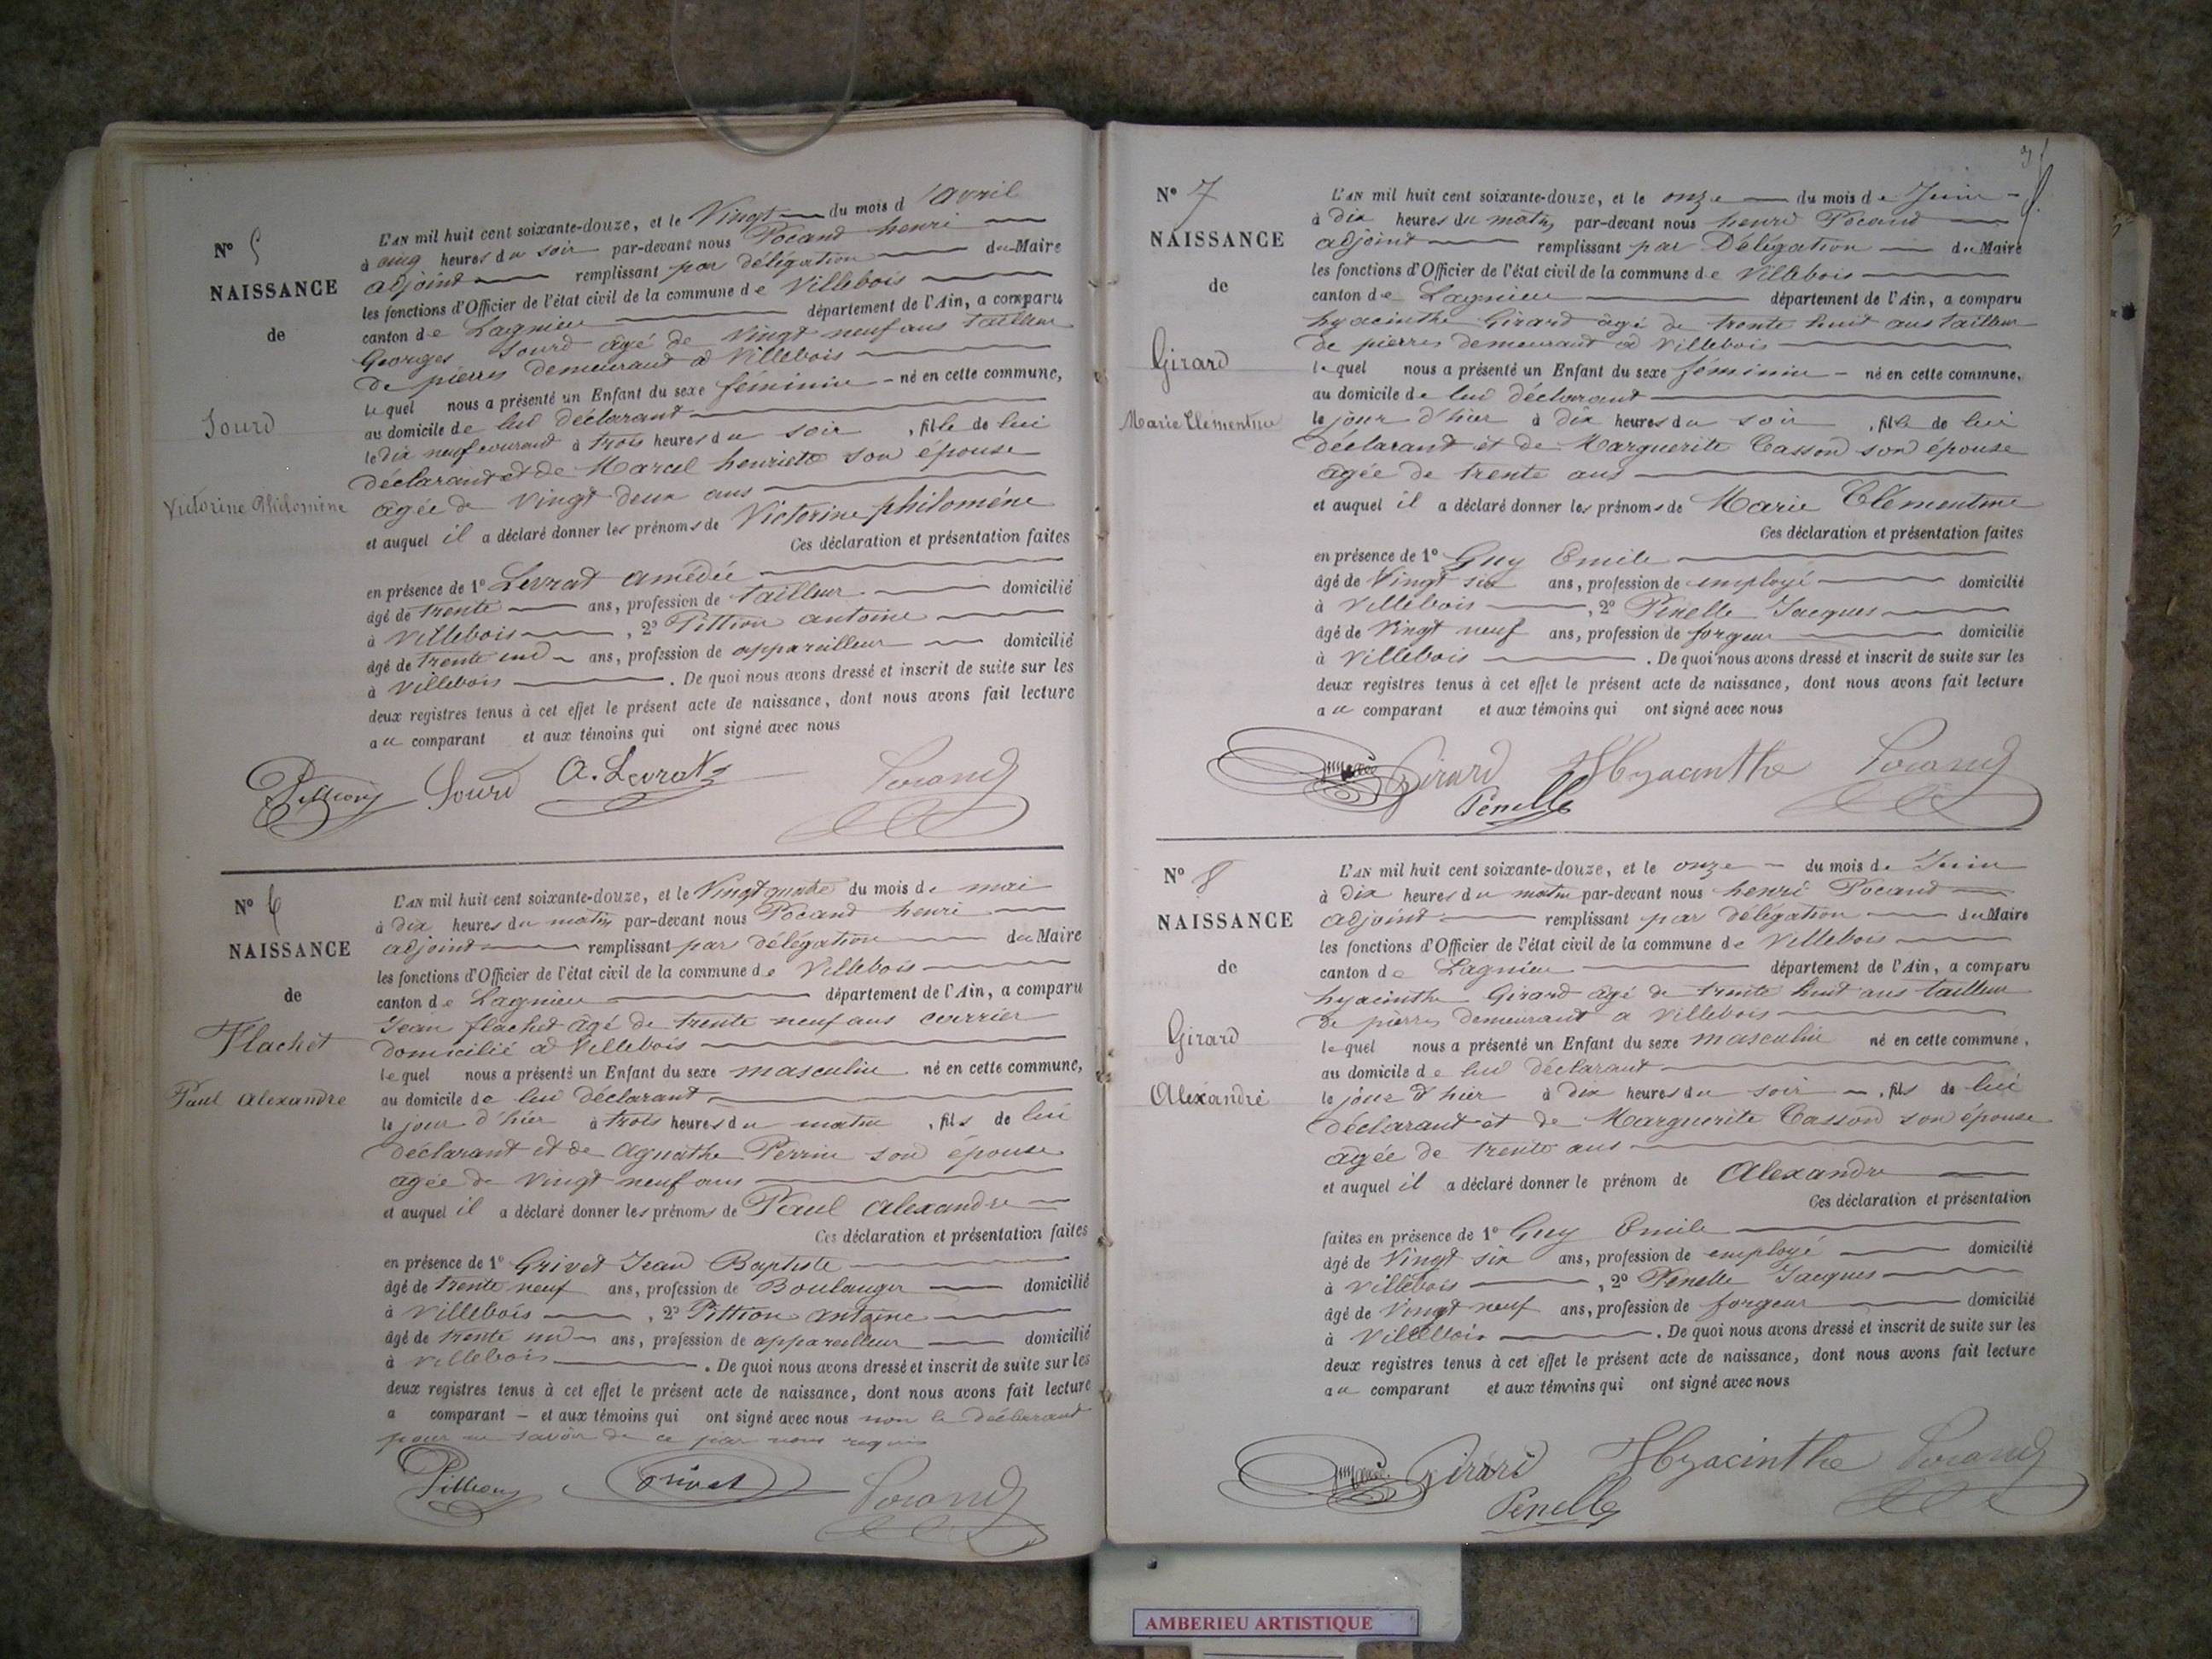 N° 5
NAISSANCE
de
Sourd
Victorine Philomène
L'AN mil huit cent soixante-douze, et le Vingt du mois d'avril
à cinq heures du soir par-devant nous Pocand henri
adjoint remplissant par délégation du Maire
les fonctions d'Officier de l'état civil de la commune de Villebois
canton de Lagnieu département de l'Ain, a comparu
Georges Sourd âgé de vingt neuf ans tailleur
de pierres demeurant à Villebois
lequel nous a présenté un Enfant du sexe féminin - né en cette commune,
au domicile de lui déclarant
le dix neuf courant à trois heures du soir , fille de lui
déclarant et de Marcel henriette son épouse
agée de vingt deux ans
et auquel il a déclaré donner les prénoms de Victorine philomène
Ces déclaration et présentation faites
en présence de 1° Levrat amédée
âgé de trente ans, profession de tailleur domicilié
à Villebois , 2° Pittion antoine
âgé de trente un ans, profession de appareilleur domicilié
à Villebois . De quoi nous avons dressé et inscrit de suite sur les
deux registres tenus à cet effet le présent acte de naissance, dont nous avons fait lecture
au comparant et aux témoins qui ont signé avec nous
Pittion Sourd A. Levrat Pocand
N° 6
NAISSANCE
de
Flachet
Paul Alexandre
L'AN mil huit cent soixante-douze, et le Vingt quatre du mois de mai
à dix heures du matin par-devant nous Pocand henri
adjoint remplissant par délégation du Maire
les fonctions d'Officier de l'état civil de la commune de Villebois
canton de Lagnieu département de l'Ain, a comparu
Jean flachet âgé de trente neuf ans carrier
domicilié à Villebois
lequel nous a présenté un Enfant du sexe masculin né en cette commune,
au domicile de lui déclarant
le jour d'hier à trois heures du matin , fils de lui
déclarant et de Agnathe Perrin son épouse
agée de vingt neuf ans
et auquel il a déclaré donner les prénoms de Paul alexandre
Ces déclaration et présentation faites
en présence de 1° Grivet Jean Baptiste
âgé de trente neuf ans, profession de Boulanger domicilié
à Villebois , 2° Pittion antoine
âgé de trente un ans, profession de appareilleur domicilié
à Villebois . De quoi nous avons dressé et inscrit de suite sur les
deux registres tenus à cet effet le présent acte de naissance, dont nous avons fait lecture
a comparant - et aux témoins qui ont signé avec nous non le déclarant
pour ne savoir de ce par nous requis
Pittion Grivet Pocand
N° 7
NAISSANCE
de
Girard
Marie Clémentine
L'AN mil huit cent soixante-douze, et le onze du mois de Juin
à dix heures du matin par-devant nous henri Pocand
adjoint remplissant par Délégation du Maire
les fonctions d'Officier de l'état civil de la commune de Villebois
canton de Lagnieu département de l'Ain, a comparu
hyacinthe Girard âgé de trente huit ans tailleur
de pierres demeurant à Villebois
lequel nous a présenté un Enfant du sexe féminin - né en cette commune,
au domicile de lui déclarant
le jour d'hier à dix heures du soir , fille de lui
déclarant et de Marguerite Casson son épouse
agée de trente ans
et auquel il a déclaré donner les prénoms de Marie Clementine
Ces déclaration et présentation faites
en présence de 1° Guy Emile
âgé de Vingt six ans, profession de employé domicilié
à Villebois , 2° Penelle Jacques
âgé de Vingt neuf ans, profession de forgeur domicilié
à Villebois . De quoi nous avons dressé et inscrit de suite sur les
deux registres tenus à cet effet le présent acte de naissance, dont nous avons fait lecture
au comparant et aux témoins qui ont signé avec nous
Girard Hyacinthe Pocand
Penelle
N° 8
NAISSANCE
de
Girard
Alexandre
L'AN mil huit cent soixante-douze, et le onze du mois de Juin
à dix heures du matin par-devant nous henri Pocand
adjoint remplissant par délégation du Maire
les fonctions d'Officier de l'état civil de la commune de Villebois
canton de Lagnieu département de l'Ain, a comparu
hyacinthe Girard âgé de trente huit ans tailleur
de pierres demeurant a Villebois
lequel nous a présenté un Enfant du sexe masculin né en cette commune,
au domicile de lui déclarant
le jour d'hier à dix heures du soir , fils de lui
déclarant et de Marguerite Casson son épouse
agée de trente ans
et auquel il a déclaré donner le prénom de Alexandre
Ces déclaration et présentation
faites en présence de 1° Guy Emile
âgé de Vingt six ans, profession de employé domicilié
à Villebois , 2° Penelle Jacques
âgé de Vingt neuf ans, profession de forgeur domicilié
à Villebois . De quoi nous avons dressé et inscrit de suite sur les
deux registres tenus à cet effet le présent acte de naissance, dont nous avons fait lecture
au comparant et aux témoins qui ont signé avec nous
Girard Hyacinthe Pocand
Penelle
AMBERIEU ARTISTIQUE